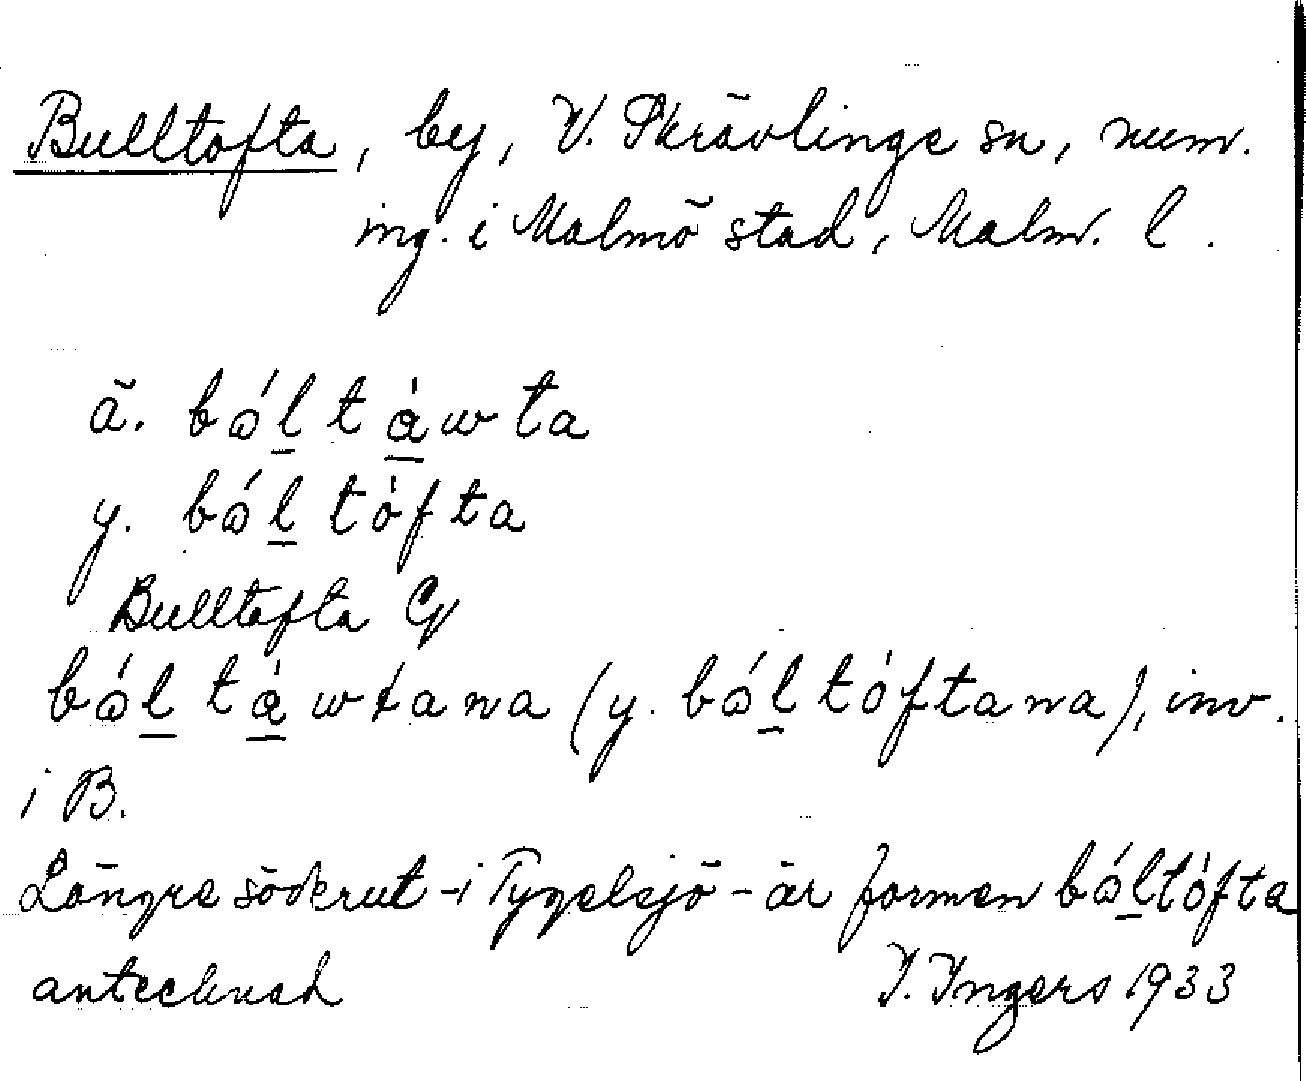 Bulltofta, by, V. Skrävlinge sn, num.
ing. i Malmö stad, Malm. l.
ä. bó̱l tàwta
y. bó̱l tòfta
Bulltofta Cy
bó̱l tàwtana (y. bó̱l tòftana), inv.
i B.
Längre söderut - i Tygelsjö - är formen bó̱ltòfta
antecknad I. Ingers 1933